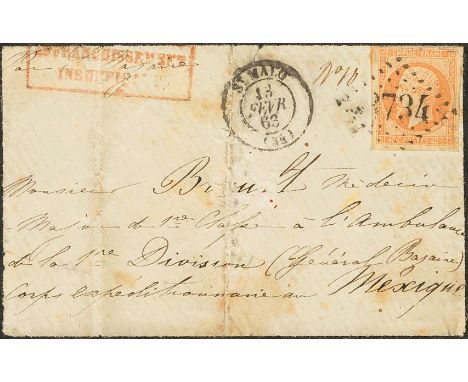 AFFRANCHISSEMENT
INSUFFIS
ST MALO
N° 10
EMPIRE FRANC
15
FEVR
62
(34)
734
Monsieur Médecin
Major de 1re Classe à l'Ambulance
de la 1re Division (Général Bazaine)
Corps expéditionnaire au Mexique